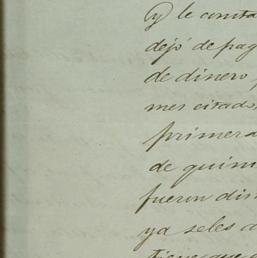 y le consta
dejó de pag
de dinero,
mes citado,
primera
de quin
fueron dis
ya seles a